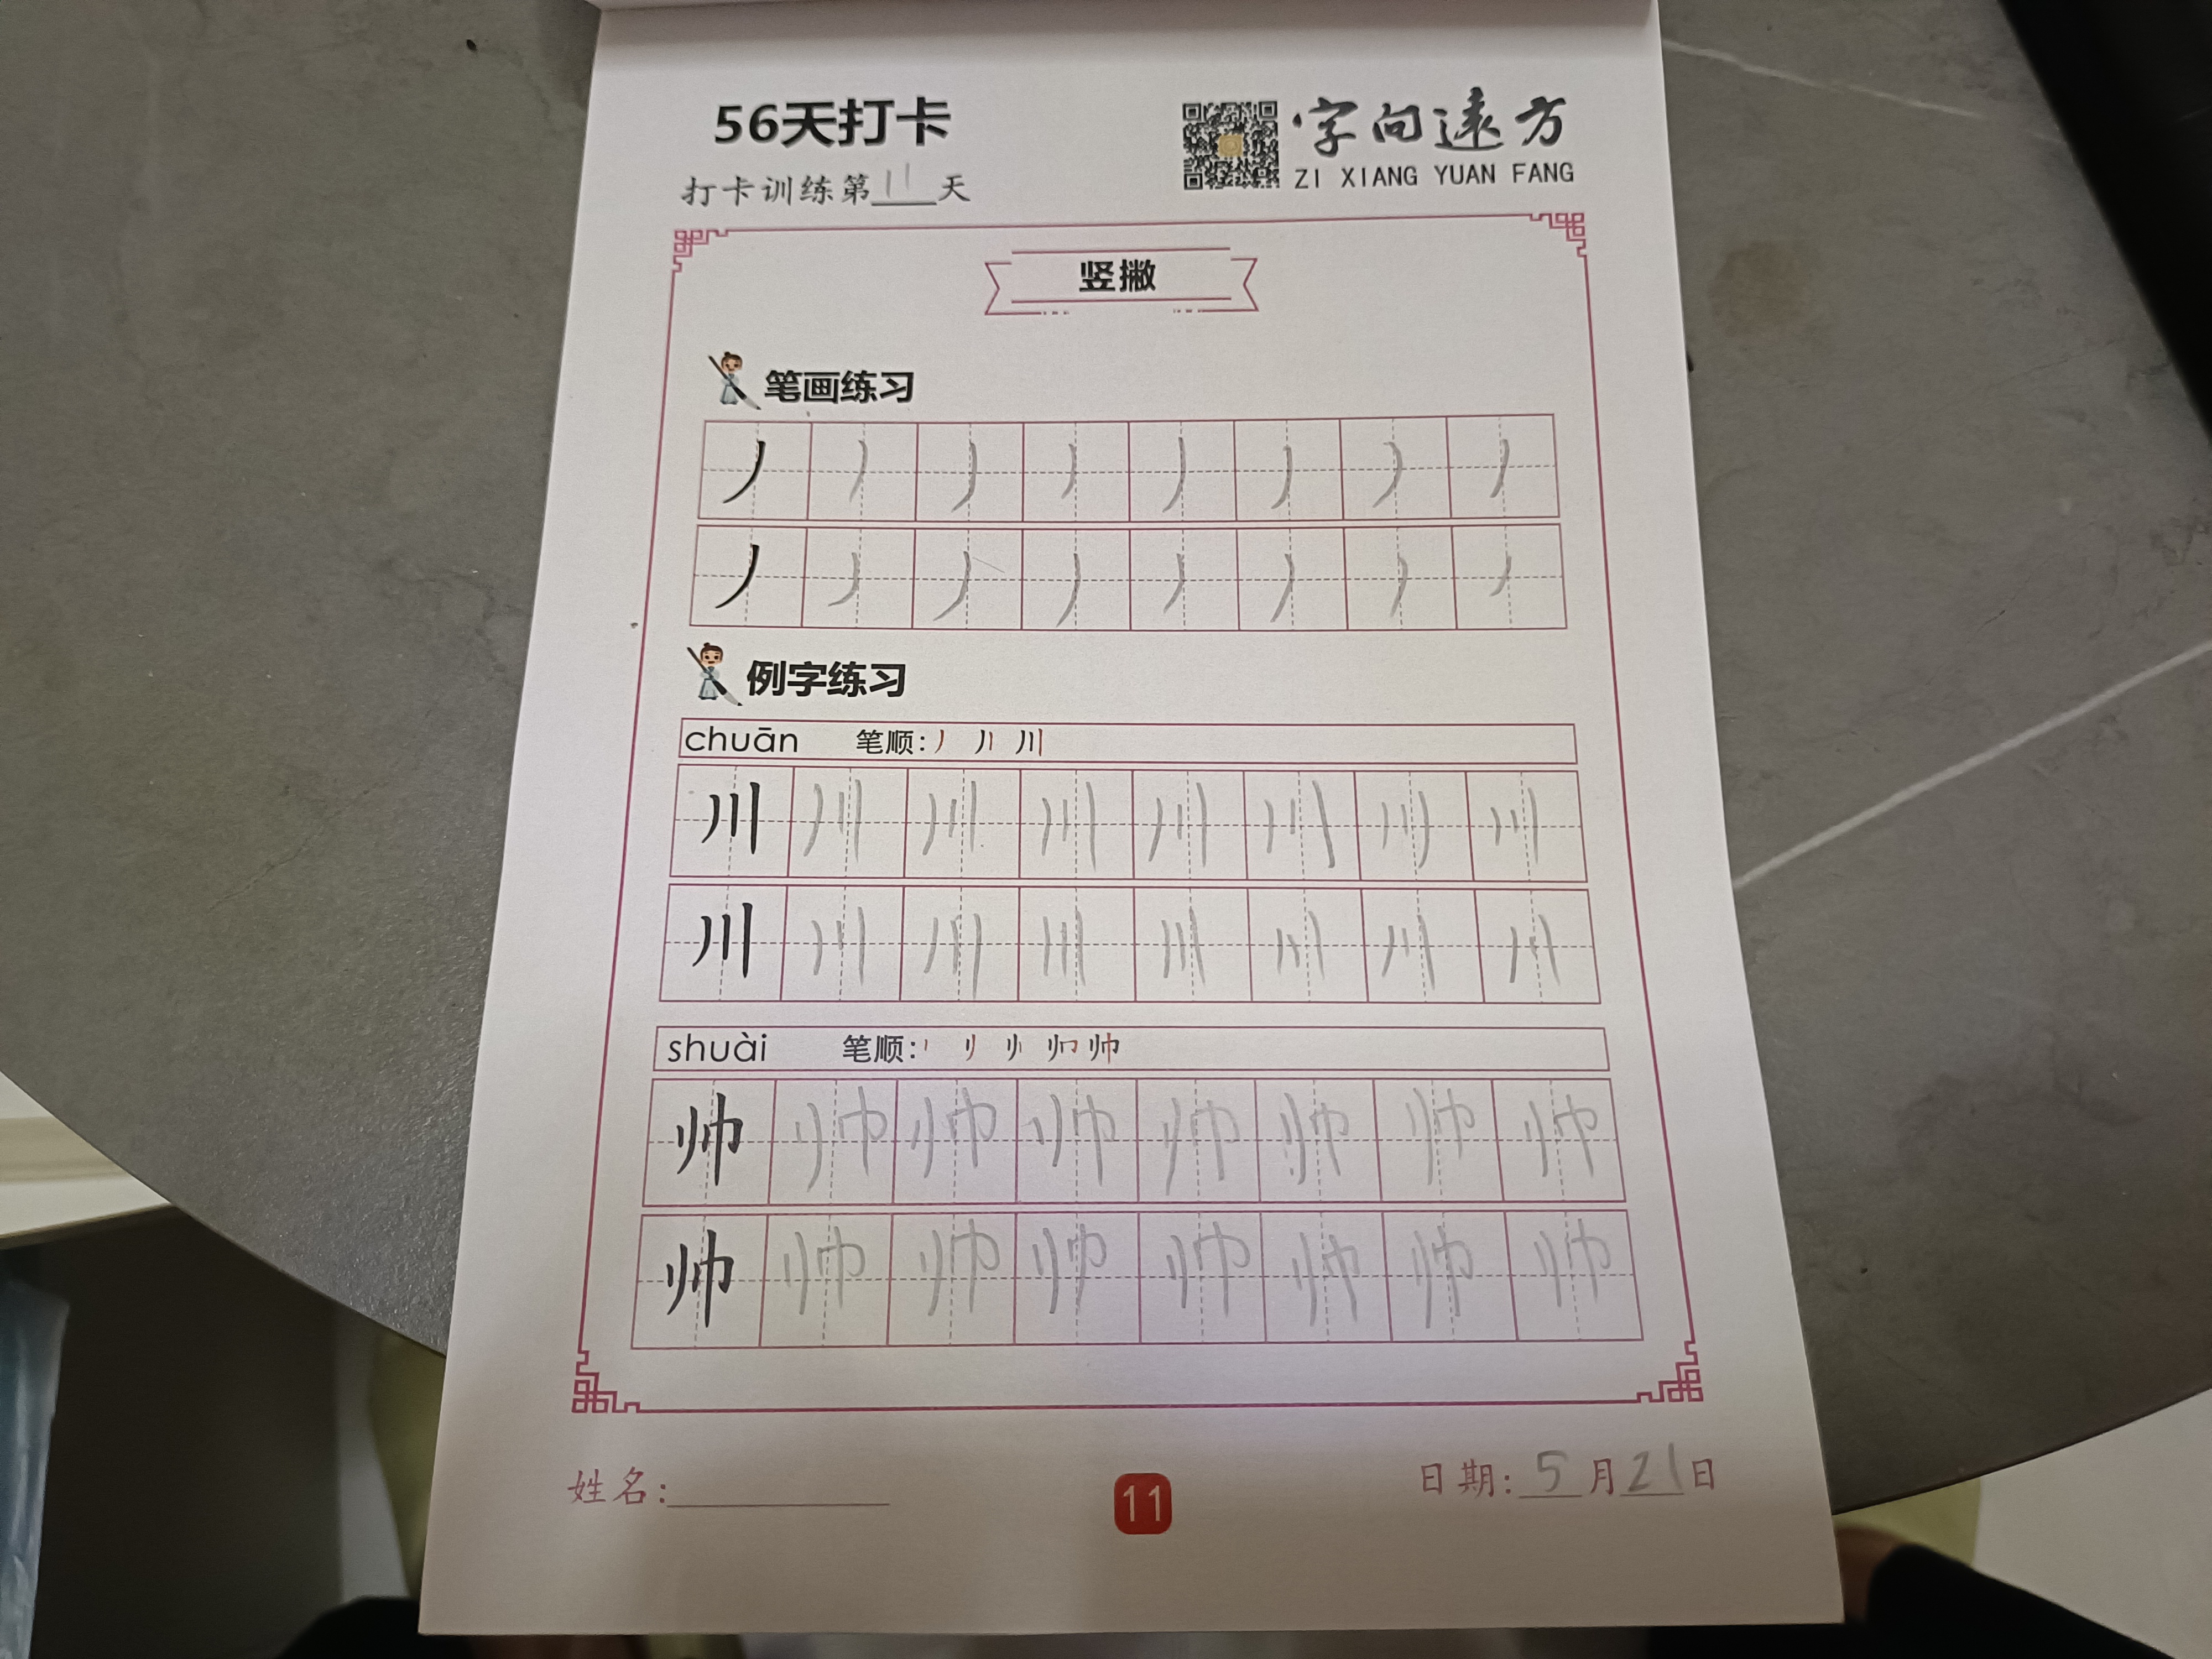 56天打卡
字向遠方
打卡训练第11天
ZI XIANG YUAN FANG
竖撇
笔画练习
丿 丿 丿 丿 丿 丿 丿 丿
丿 丿 丿 丿 丿 丿 丿 丿
例字练习
chuān 笔顺: 丿 丿丨 川
川 川 川 川 川 川 川 川
川 川 川 川 川 川 川 川
shuài 笔顺: 丨 刂 帅
帅 帅 帅 帅 帅 帅 帅 帅
帅 帅 帅 帅 帅 帅 帅 帅
姓名:
11
日期: 5月21日